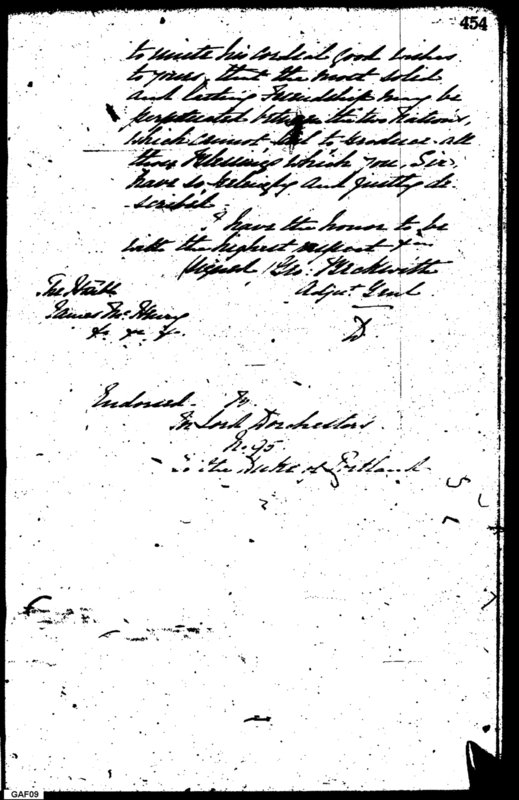 454
to unite his cordial good wishes
to yours, that the most solid
and lasting Friendship may be
perpetuated between the two Nations,
which cannot fail to produce all
those Blessings which you, Sir,
have so and justly de-
scribed.
I have the honor to be
with the highest respect &c
(signed) Geo: Beckwith
Adjt. Genl
The Honble
James McHenry
&c &c &c
Endorsed. In
In Lord Dorchester's
N. 95
to the Duke of Portland
GAF09